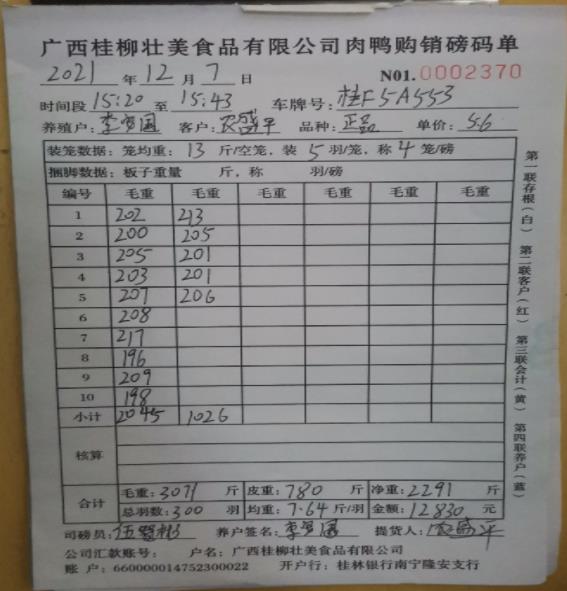 广西桂柳壮美食品有限公司肉鸭购销磅码单
2021 年 12 月 7 日 N01.0002370
时间段 15:20 至 15:43 车牌号: 桂F5A553
养殖户: 李 国 客户: 农盛平 品种: 正品 单价: 5.6
装笼数据: 笼均重: 13 斤/空笼, 装 5 羽/笼, 称 4 笼/磅
捆脚数据: 板子重量 斤, 称 羽/磅
编号 毛重 毛重 毛重 毛重 毛重 毛重
1 202 213
2 200 205
3 205 201
4 203 201
5 207 206
6 208
7 217
8 196
9 209
10 198
小计 2045 1026
核算
合计 毛重: 3071 斤 皮重: 780 斤 净重: 2291 斤
总羽数: 300 羽 均重: 7.64 斤/羽 金额: 12830 元
司磅员: 伍 彬 养户签名: 李 国 提货人: 农盛平
公司汇款账号: 户名: 广西桂柳壮美食品有限公司
账 户: 660000014752300022 开户行: 桂林银行南宁隆安支行
第一联存根(白) 第二联客户(红) 第三联会计(黄) 第四联养户(蓝)